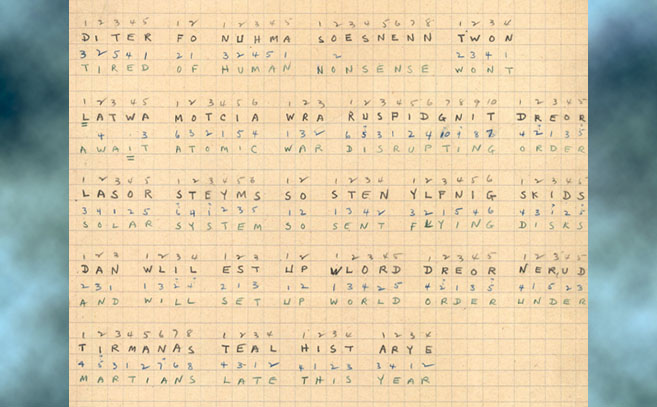 1 2 3 4 5 1 2 1 2 3 4 5 1 2 3 4 5 6 7 8 1 2 3 4
DITER FO NUHMA SOESNENN TWON
3 2 5 4 1 2 1 3 2 4 5 1 2 2 3 4 1
TIRED OF HUMAN NONSENSE WONT
1 2 3 4 5 1 2 3 4 5 6 1 2 3 1 2 3 4 5 6 7 8 9 10 1 2 3 4 5
LATWA MOTCIA WRA RUSPIDGNIT DREOR
4 3 6 3 2 1 5 4 1 3 2 6 5 3 1 2 4 10 9 8 7 4 2 1 3 5
AWAIT ATOMIC WAR DISRUPTING ORDER
1 2 3 4 5 1 2 3 4 5 6 1 2 1 2 3 4 1 2 3 4 5 6 1 2 3 4 5
LASOR STEYMS SO STEN YLFNIG SKIDS
3 4 1 2 5 1 2 1 3 4 2 3 2 1 5 4 6 4 3 1 2 5
SOLAR SYSTEM SO SENT FLYING DISKS
1 2 3 1 2 3 4 1 2 3 1 2 1 2 3 4 5 1 2 3 4 5 1 2 3 4 5
DAN WLIL EST UP WLORD DREOR NERUD
2 3 1 1 3 2 4 2 1 3 1 2 1 3 4 2 5 4 2 1 3 5 4 1 5 2 3
AND WILL SET UP WORLD ORDER UNDER
1 2 3 4 5 6 7 8 1 2 3 4 1 2 3 4 1 2 3 4
TIRMANAS TEAL HIST ARYE
4 5 3 1 2 7 6 8 4 3 1 2 4 1 2 3 3 4 1 2
MARTIANS LATE THIS YEAR